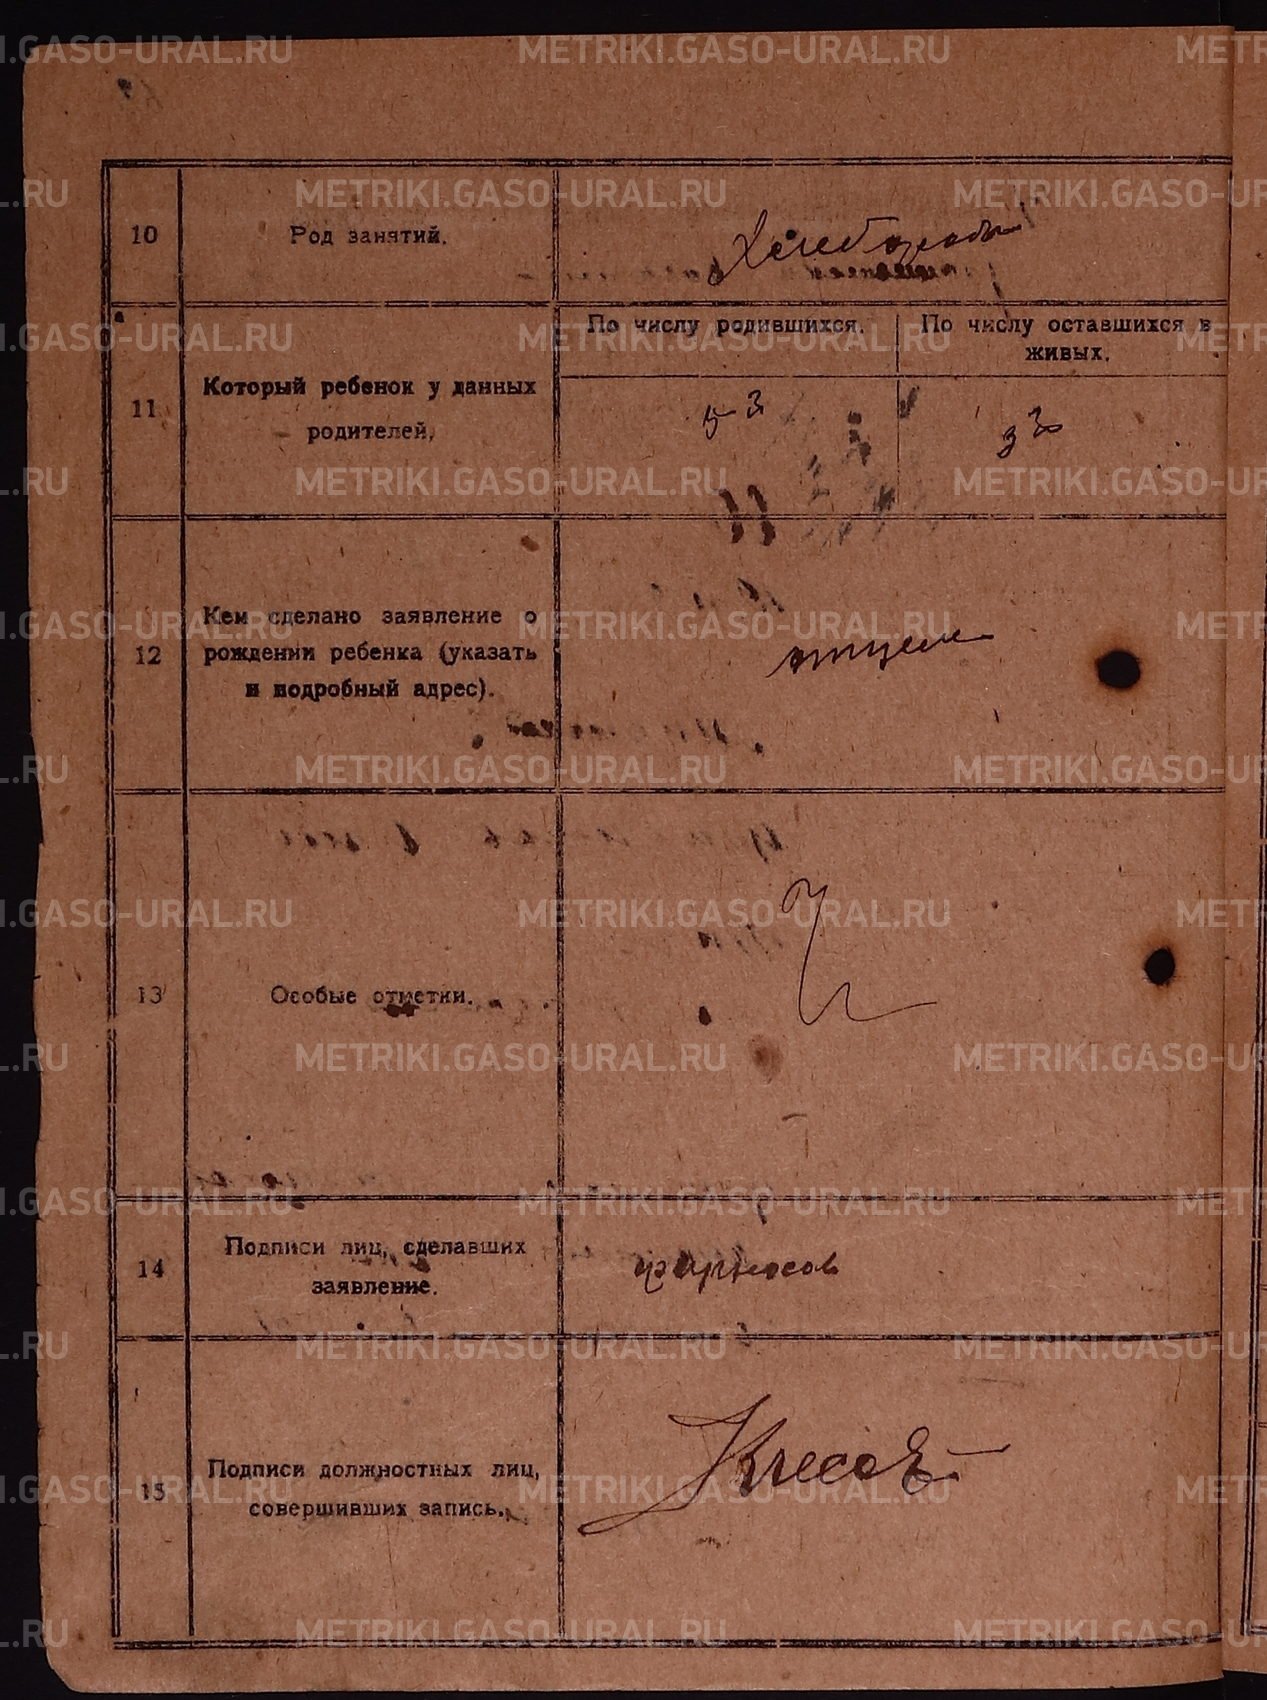 10
Род занятий.
11
Который ребенок у данных
родителей.
По числу родившихся.
По числу оставшихся в
живых.
5
3
12
Кем сделано заявление о
рождении ребенка (указать
и подробный адрес).
отцем
13
Особые отметки.
14
Подписи лиц, сделавших
заявление.
15
Подписи должностных лиц,
совершивших запись.
METRIKI.GASO-URAL.RU